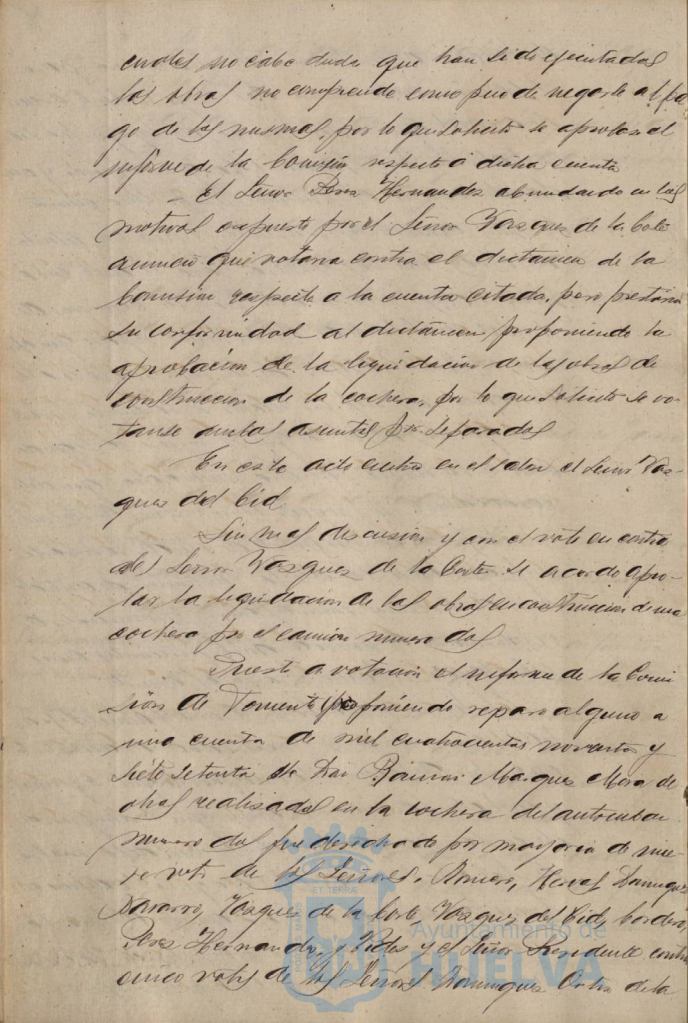 cuales no cabe duda que han sido ejecutadas
las obras no comprendo como puede negarse al pa
go de las mismas, por lo que solicito se apruebe el
informe de la Comisión respecto a dicha cuenta
El Señor Perez Hernandez abundando en los
motivos expuesto por el Señor Vazquez de la Corte
anunció que votaria contra el dictamen de la
Comision respecto a la cuenta citada, pero prestaria
su conformidad al dictamen proponiendo la
aprobación de la liquidación de las obras de
construccion de la cochera, por lo que solicito se vo
tansen ambos asuntos por separados
En este acto entra en el salon el Señor Vaz
quez del Cid
Sin mas discusión y con el voto en contra
del Señor Vazquez de la Corte se acordo apro
bar la liquidacion de las obras en construccion de una
cochera para el camion numero dos
Puesto a votación el informe de la Comi
sion de Fomento proponiendo reparo alguno a
una cuenta de mil cuatrocientas noventa y
siete setenta de Don Ramon Marquez Mora de
obras realizadas en la cochera del autocuba
numero dos fue desechado por mayoria de nue
ve votos de los Señores, Romero, Hervas, Dominguez
Navarro, Vazquez de la Corte Vazquez del Cid, Cordero,
Perez Hernandez, y el Señor Presidente contra
cinco votos de los Señores Dominguez Ortiz de la
ET TERRAE
Ayuntamiento de
HUELVA